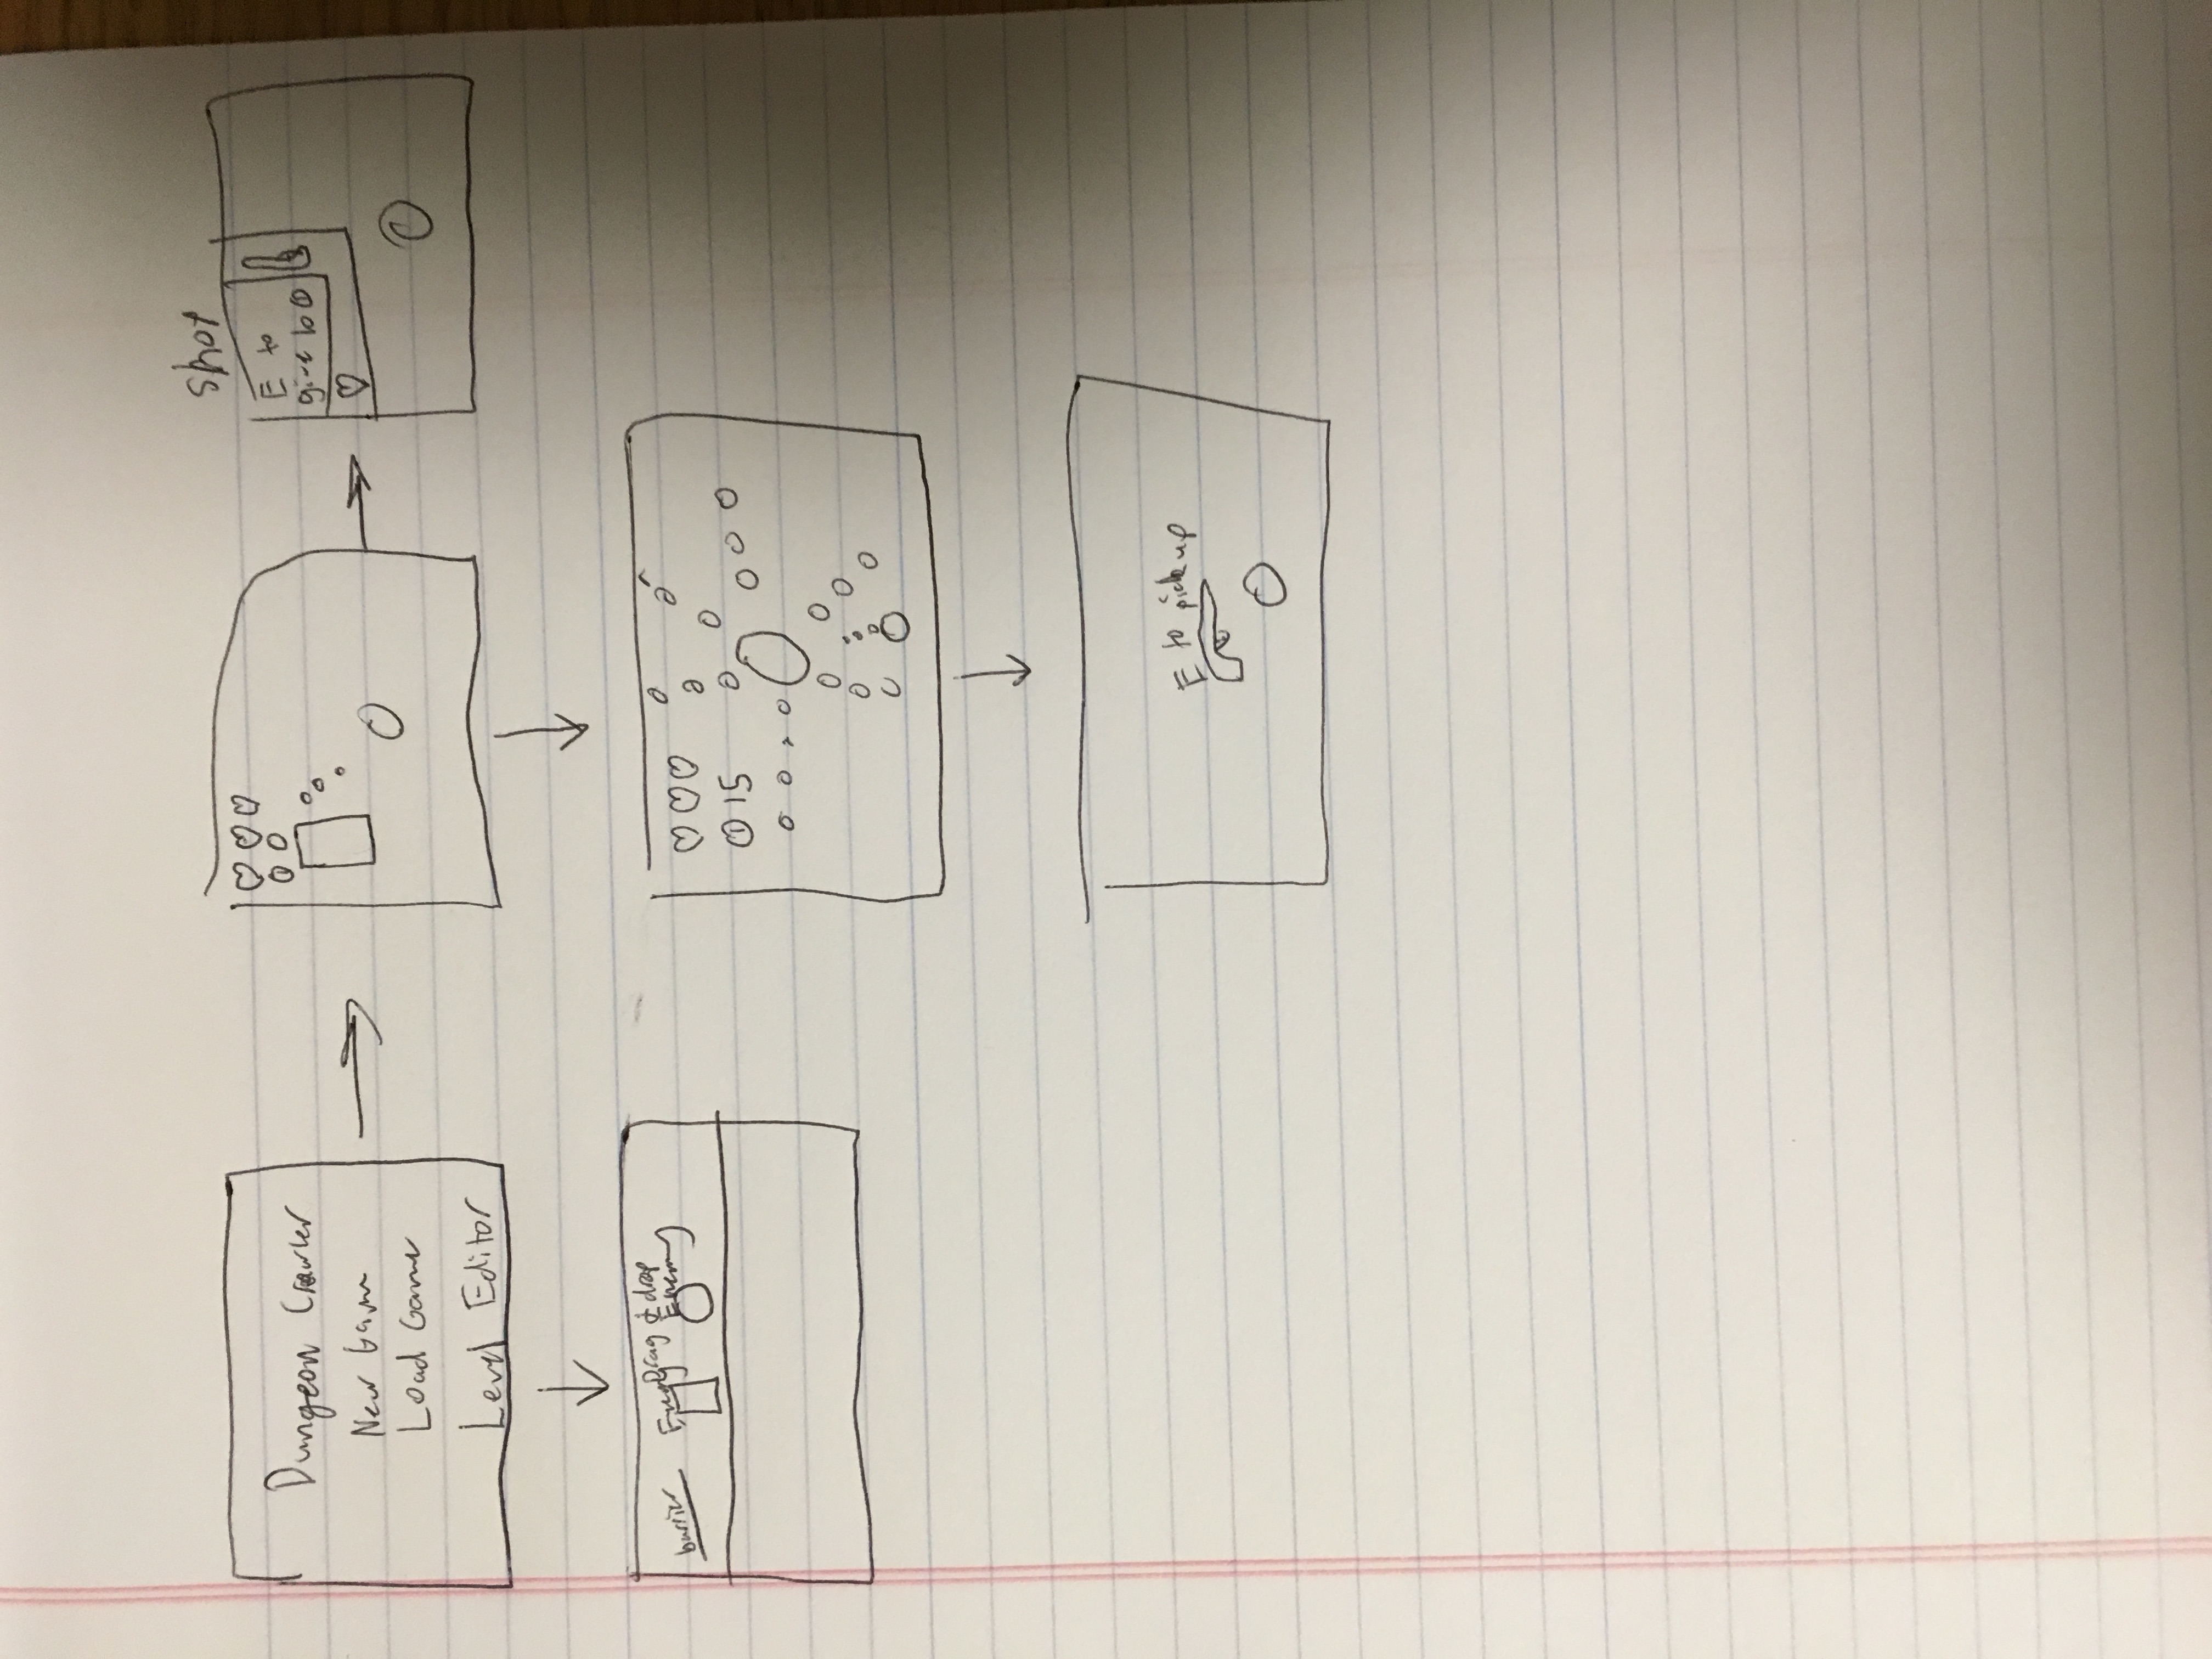 Dungeon Crawler
New Game
Load Game
Level Editor
Shop
E to
give 10 ①
barrier
Enemy
Drag & drop
Enemy
① 15
E to pick up